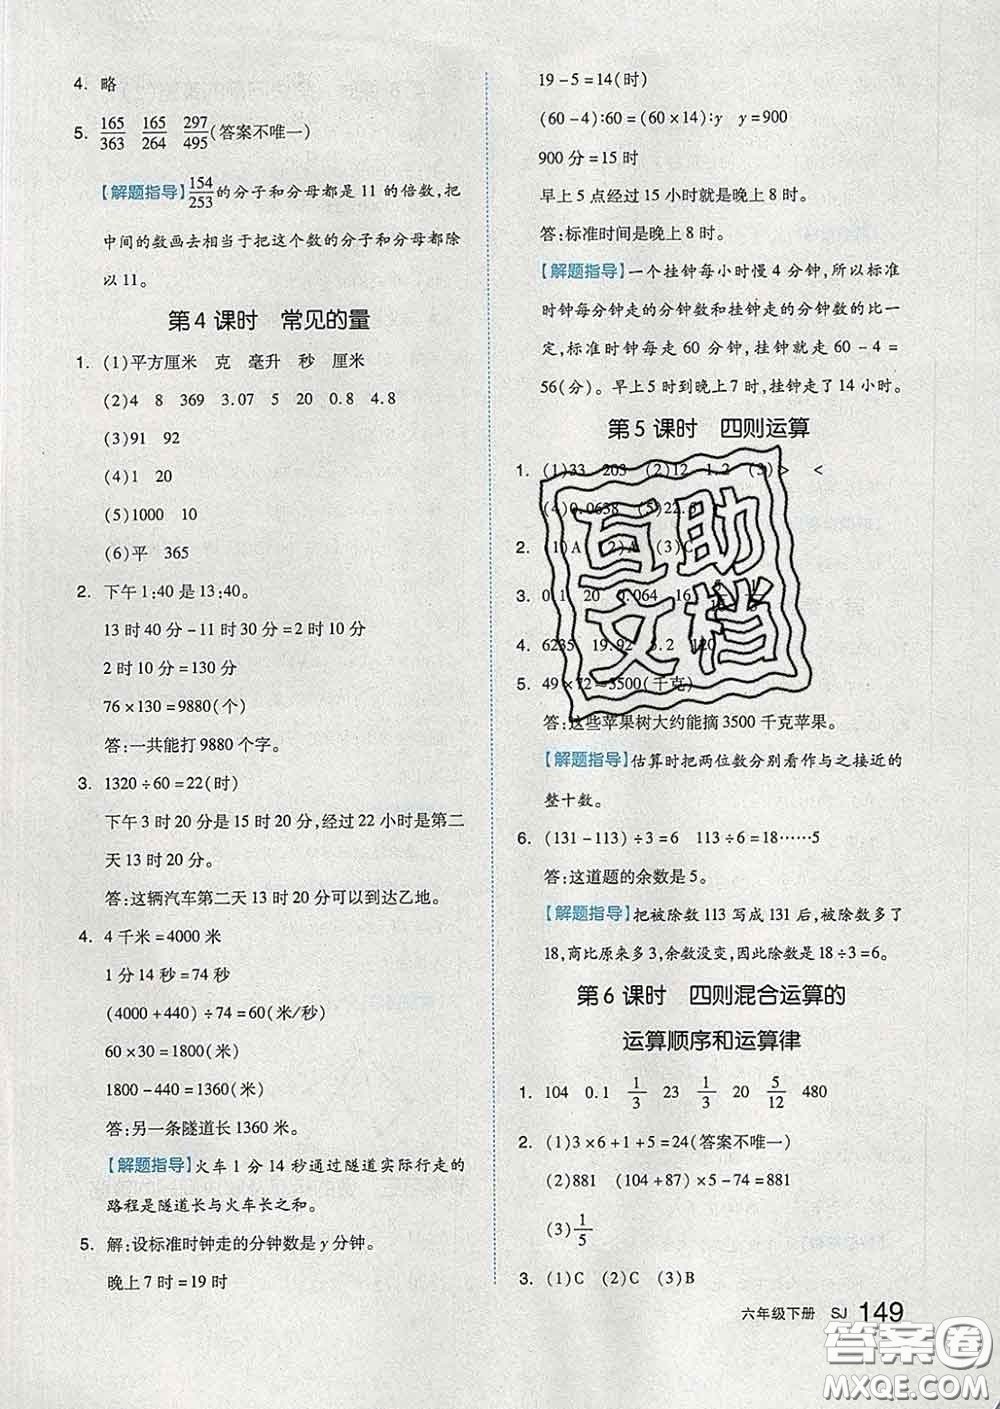 4. 略
5. 165/363 165/264 297/495(答案不唯一)
【解题指导】154/253的分子和分母都是 11 的倍数,把
中间的数画去相当于把这个数的分子和分母都除
以 11。
第 4 课时 常见的量
1. (1)平方厘米 克 毫升 秒 厘米
(2)4 8 369 3.07 5 20 0.8 4.8
(3)91 92
(4)1 20
(5)1000 10
(6)平 365
2. 下午 1:40 是 13:40。
13 时 40 分-11 时 30 分=2 时 10 分
2 时 10 分=130 分
76×130=9880(个)
答:一共能打 9880 个字。
3. 1320÷60=22(时)
下午 3 时 20 分是 15 时 20 分,经过 22 小时是第二
天 13 时 20 分。
答:这辆汽车第二天 13 时 20 分可以到达乙地。
4. 4 千米=4000 米
1 分 14 秒=74 秒
(4000+440)÷74=60(米/秒)
60×30=1800(米)
1800-440=1360(米)
答:另一条隧道长 1360 米。
【解题指导】火车 1 分 14 秒通过隧道实际行走的
路程是隧道长与火车长之和。
5. 解:设标准时钟走的分钟数是 y 分钟。
晚上 7 时=19 时
19-5=14(时)
(60-4):60=(60×14):y y=900
900 分=15 时
早上 5 点经过 15 小时就是晚上 8 时。
答:标准时间是晚上 8 时。
【解题指导】一个挂钟每小时慢 4 分钟,所以标准
时钟每分钟走的分钟数和挂钟走的分钟数的比一
定,标准时钟每走 60 分钟,挂钟就走 60-4=
56(分)。早上 5 时到晚上 7 时,挂钟走了 14 小时。
第 5 课时 四则运算
1. (1)33 203 (2)12 1.2 (3)> <
(4)0.0638 (5)22.
2. (1)A (2)A (3)C
3. 0.1 20 0.064 16
4. 6235 19.92 3.2 120
5. 49×72≈3500(千克)
答:这些苹果树大约能摘 3500 千克苹果。
【解题指导】估算时把两位数分别看作与之接近的
整十数。
6. (131-113)÷3=6 113÷6=18……5
答:这道题的余数是 5。
【解题指导】把被除数 113 写成 131 后,被除数多了
18,商比原来多 3,余数没变,因此除数是 18÷3=6。
第 6 课时 四则混合运算的
运算顺序和运算律
1. 104 0.1 1/3 23 1/3 20 5/12 480
2. (1)3×6+1+5=24(答案不唯一)
(2)881 (104+87)×5-74=881
(3)1/5
3. (1)C (2)C (3)B
六年级下册 SJ 149
互助
文档
答案圈
MXQE.COM